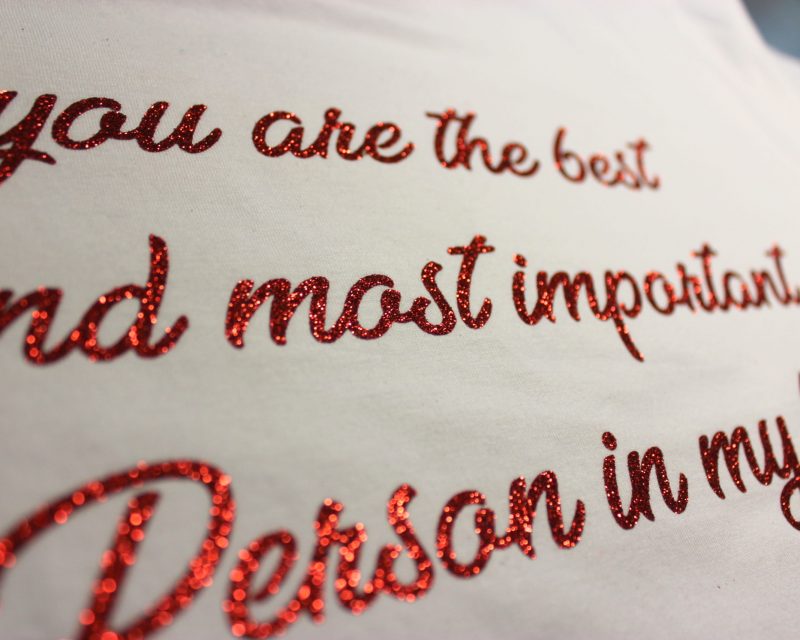 you are the best
and most important
Person in my